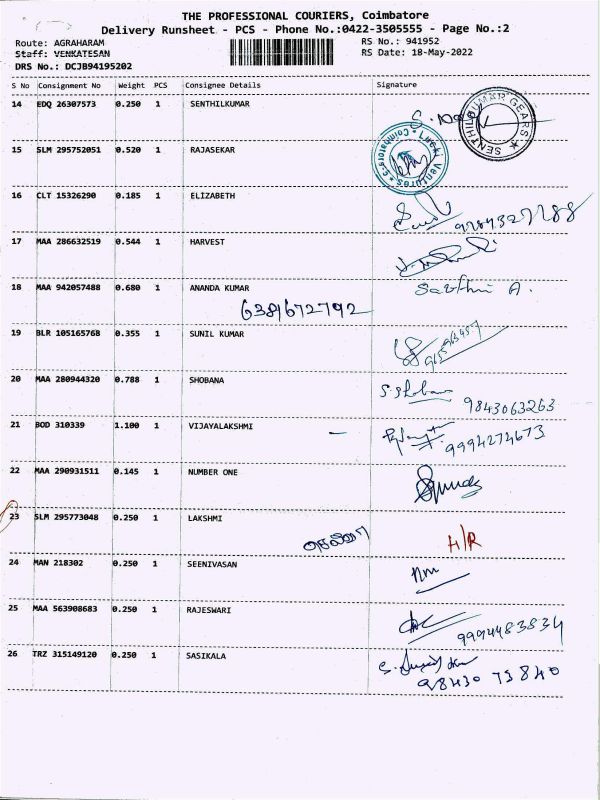 THE PROFESSIONAL COURIERS, Coimbatore
Delivery Runsheet - PCS - Phone No.:0422-3505555 - Page No.:2
Route: AGRAHARAM RS No.: 941952
Staff: VENKATESAN RS Date: 18-May-2022
DRS No.: DCJB94195202
S No Consignment No Weight PCS Consignee Details Signature
14 EDQ 26307573 0.250 1 SENTHILKUMAR
SENTHILKUMAR GEARS
15 SLM 295752051 0.520 1 RAJASEKAR
16 CLT 15326290 0.185 1 ELIZABETH
17 MAA 286632519 0.544 1 HARVEST
18 MAA 942057488 0.680 1 ANANDA KUMAR
6381672792
19 BLR 105165768 0.355 1 SUNIL KUMAR
20 MAA 280944320 0.788 1 SHOBANA
9843063263
21 BOD 310339 1.100 1 VIJAYALAKSHMI
9994274673
22 MAA 290931511 0.145 1 NUMBER ONE
23 SLM 295773048 0.250 1 LAKSHMI H/R
24 MAN 218302 0.250 1 SEENIVASAN
25 MAA 563908683 0.250 1 RAJESWARI
9994483834
26 TRZ 315149120 0.250 1 SASIKALA
98430 73840